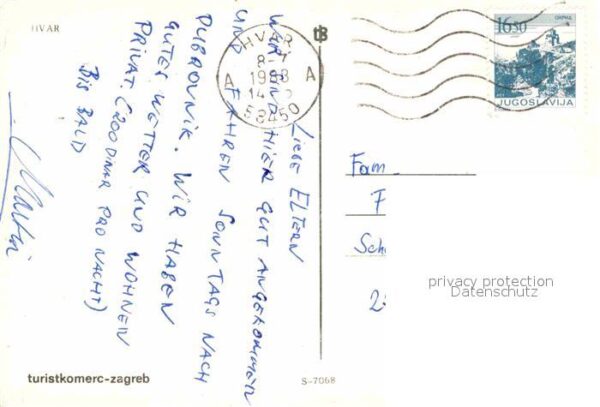 HVAR
LIEBE ELTERN
WIR SIND HIER GUT ANGEKOMMEN
UND FAHREN SONNTAGS NACH
DUBROVNIK. WIR HABEN
GUTES WETTER UND WOHNEN
PRIVAT. (200 DINAR PRO NACHT)
BIS BALD
Martin
turistkomerc-zagreb
HVAR
8-
1983
A A
14
58450
16.50
JUGOSLAVIJA
Fam.
F
Sch
2
privacy protection
Datenschutz
S-7068